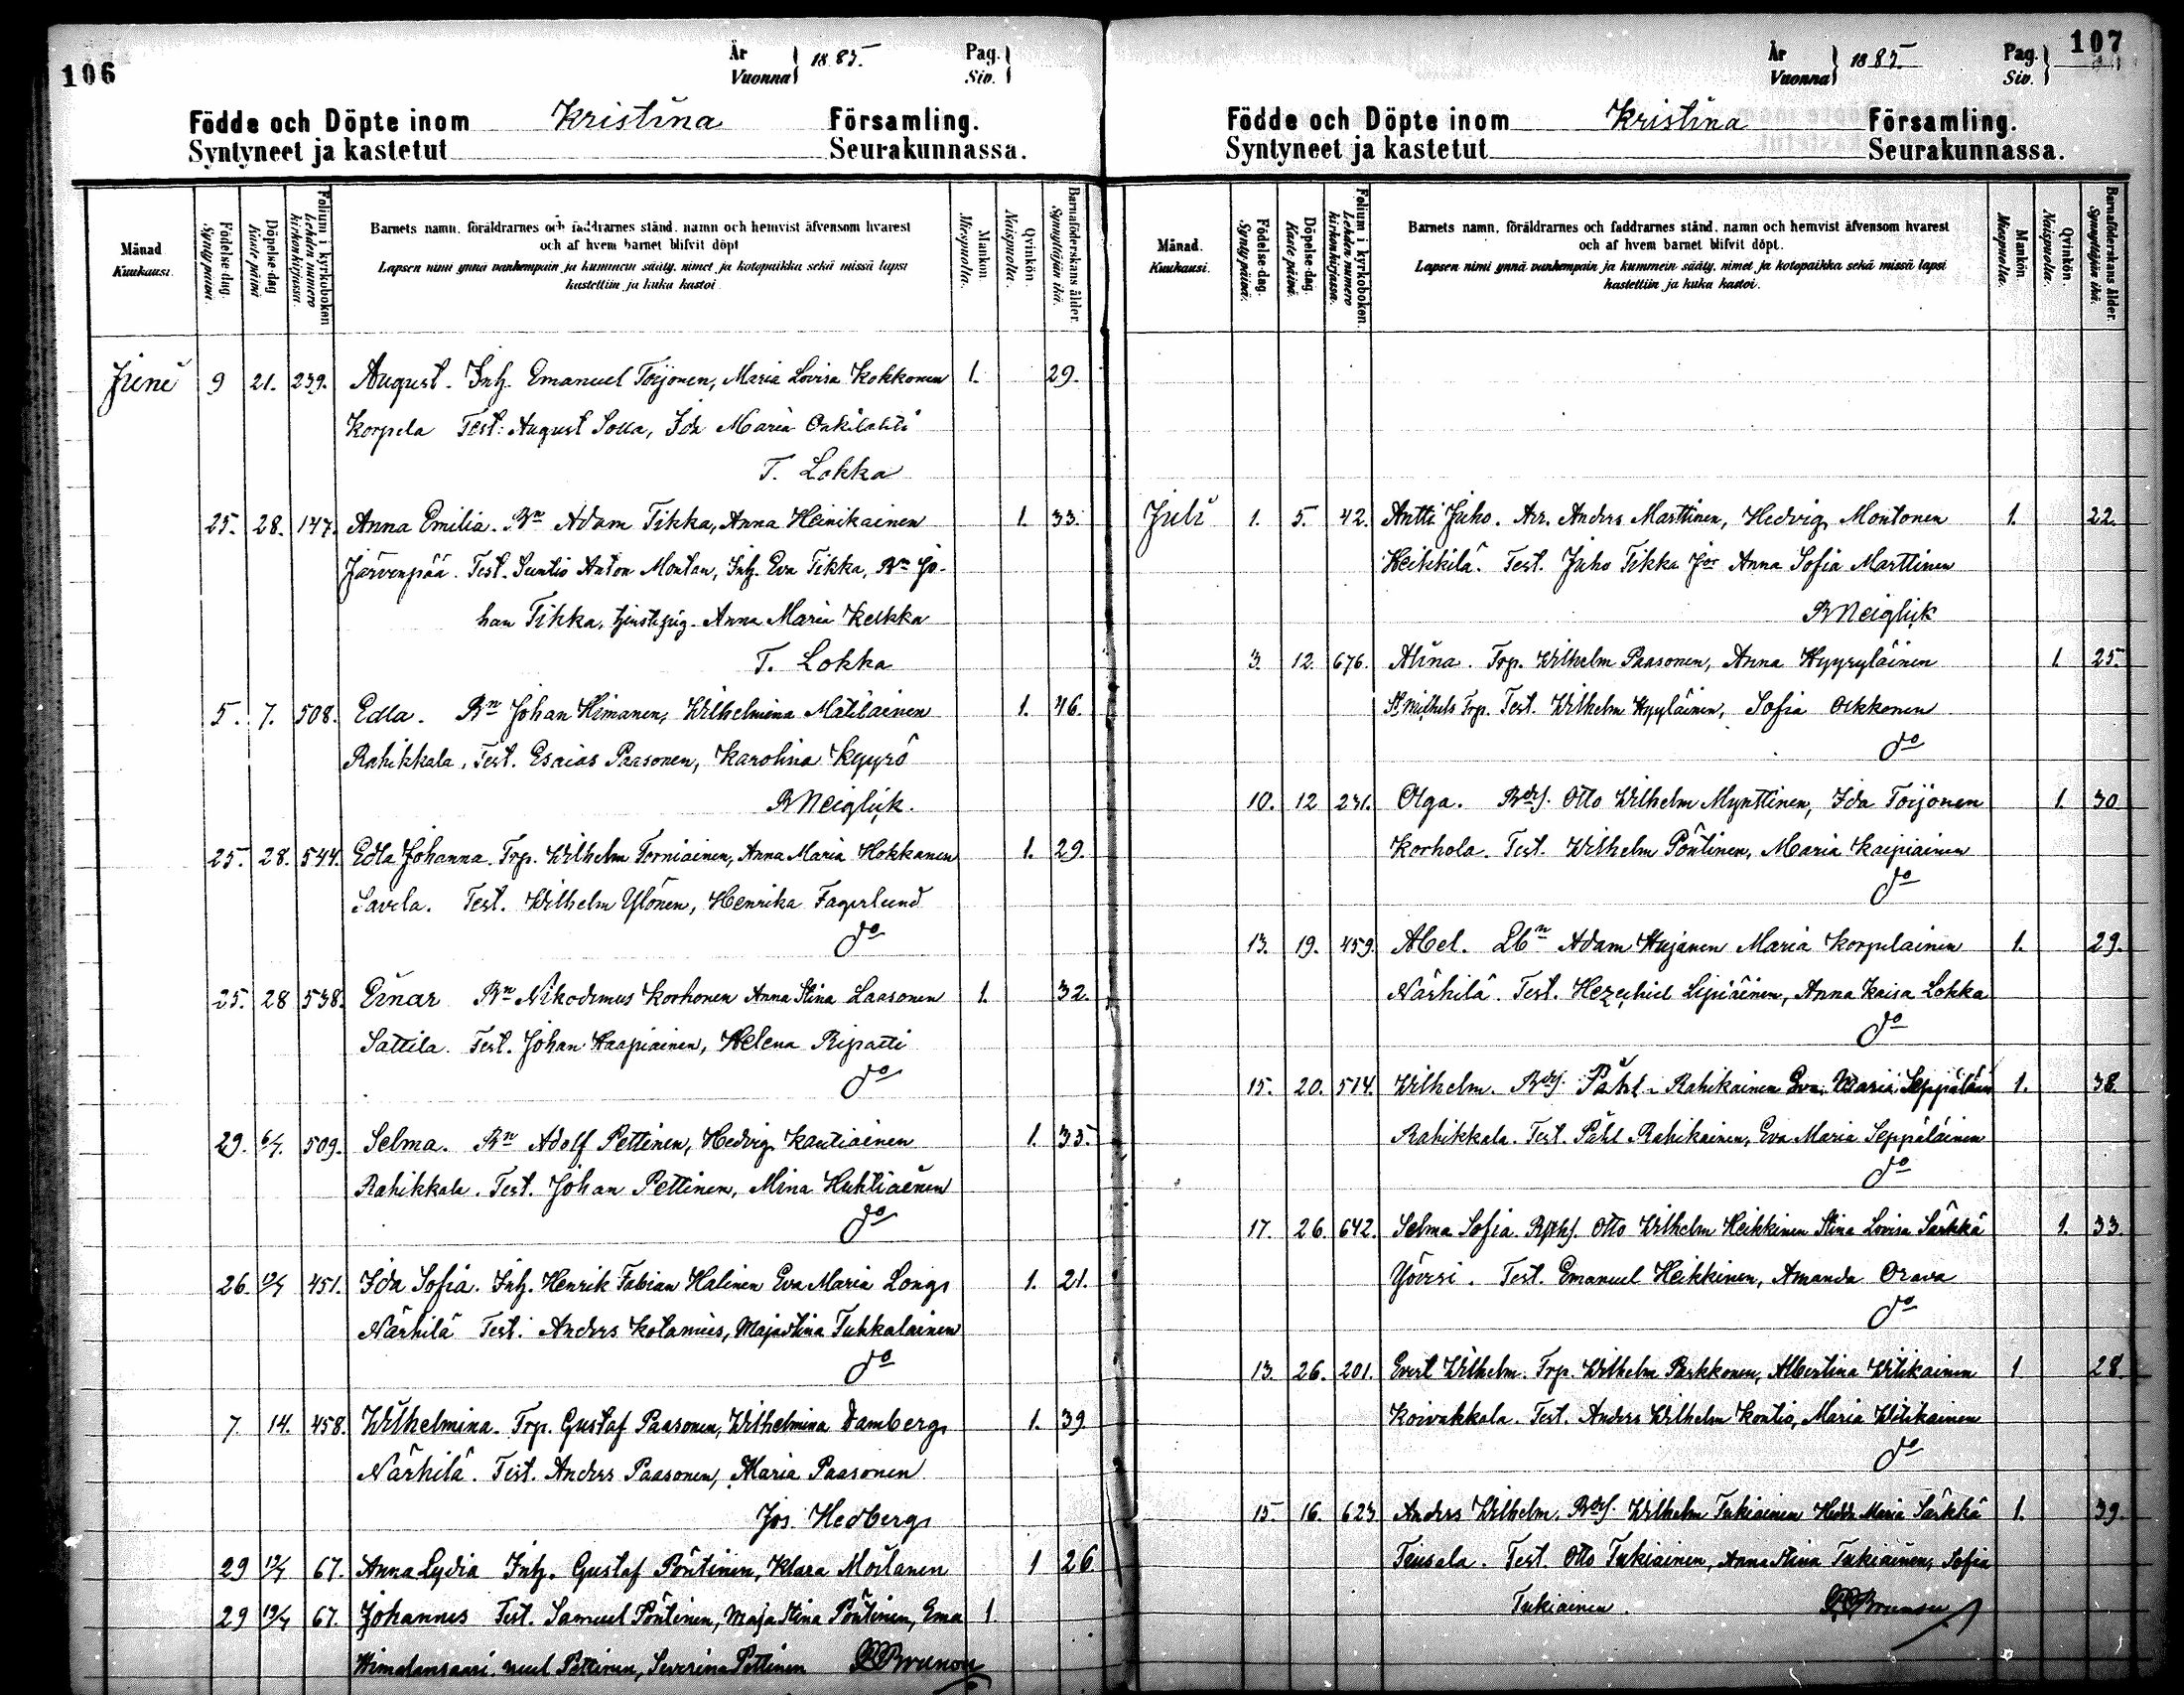 106
År
Vuonna
1885.
Pag.
Siv.
Födde och Döpte inom Kristina Församling.
Syntyneet ja kastetut Seurakunnassa.
Månad
Kuukausi.
Födelse-dag.
Synty-päivä.
Döpelse-dag
Kaste-päivä
Folium i kyrkoboken
Lehden numero kirkonkirjassa.
Barnets namn, föräldrarnes och faddrarnes stånd, namn och hemvist äfvensom hvarest
och af hvem barnet blifvit döpt
Lapsen nimi ynnä vanhempain ja kummein sääty, nimet ja kotopaikka sekä missä lapsi
kastettiin ja kuka kastoi
Mankön.
Miespuolta.
Qvinkön.
Naispuolta.
Barnaföderskans ålder.
Synnyttäjän ikä.
Juni 9 21. 239. August. Inh. Emanuel Toijonen, Maria Lovisa Kokkonen 1. 29.
Korpela Test: August Sotta, Ida Maria Onkilahti
T. Lokka
25. 28. 147. Anna Emilia. Bn Adam Tikka, Anna Heinikainen 1. 33.
Järvenpää. Test. Suntio Anton Montan, Inh. Eva Tikka, Bn Jo-
han Tikka, tjenstepig. Anna Maria Kelkka
T. Lokka
5. 7. 508. Edla. Bn Johan Himanen, Wilhelmina Matilainen 1. 46.
Rahikkala. Test. Esaias Paasonen, Karolina Kyyrö
B Meiglick.
25. 28. 544. Edla Johanna. Trp. Wilhelm Torniainen, Anna Maria Hokkanen 1. 29.
Savela. Test. Wilhelm Ylönen, Henrika Fagerlund
do
25. 28 538. Einar Bn Nikodemus Korhonen Anna Stina Laasonen 1. 32.
Sattila. Test. Johan Haapiainen, Helena Ripatti
do
29. 6/7. 509. Selma. Bn Adolf Pettinen, Hedvig Kautiainen 1. 35.
Rahikkala. Test. Johan Pettinen, Mina Huhtiainen
do
26. 12/7 451. Ida Sofia. Inh. Henrik Fabian Halinen Eva Maria Long 1. 21.
Närhilä Test. Anders Kotamies, Maja Stina Tuhkalainen
do
7. 14. 458. Wilhelmina. Trp. Gustaf Paasonen, Wilhelmina Damberg 1. 39
Närhilä. Test. Anders Paasonen, Maria Paasonen
Jos. Hedberg
29 12/7 67. Anna Lydia Inh. Gustaf Pöntinen, Klara Moilanen 1 26
29 12/7 67. Johannes Test. Samuel Pöntinen, Maja Stina Pöntinen, Ema 1.
Himalansaari. nuel Pettinen, Severina Pettinen Brunou
107
År
Vuonna
1885.
Pag.
Siv.
Födde och Döpte inom Kristina Församling.
Syntyneet ja kastetut Seurakunnassa.
Månad.
Kuukausi.
Födelse-dag.
Synty-päivä.
Döpelse-dag.
Kaste-päivä.
Folium i kyrkoboken.
Lehden numero kirkonkirjassa.
Barnets namn, föräldrarnes och faddrarnes stånd, namn och hemvist äfvensom hvarest
och af hvem barnet blifvit döpt.
Lapsen nimi ynnä vanhempain ja kummein sääty, nimet ja kotopaikka sekä missä lapsi
kastettiin ja kuka kastoi.
Mankön.
Miespuolta.
Qvinkön.
Naispuolta.
Barnaföderskans ålder.
Synnyttäjän ikä.
Juli 1. 5. 42. Antti Juho. Arr. Anders Marttinen, Hedvig Montonen 1. 22.
Heikkilä. Test. Juho Tikka Jor Anna Sofia Marttinen
B Meiglick
3. 12. 676. Alina. Trp. Wilhelm Paasonen, Anna Hyyryläinen 1. 25.
St Michels Trp. Test. Wilhelm Hyyläinen, Sofia Okkonen
do
10. 12 231. Olga. Bdrf. Otto Wilhelm Mynttinen, Ida Toijonen 1. 30
Korhola. Test. Wilhelm Pöntinen, Maria Kaipiainen
do
13. 19. 459. Abel. Lbn Adam Hujanen Maria Korpelainen 1. 29.
Närhilä. Test. Hezechiel Lipiäinen, Anna Kaisa Lokka
do
15. 20. 514. Wilhelm. Bdrf. Påhl Rahikainen Eva Maria Seppäläin 1. 38.
Rahikkala. Test. Påhl Rahikainen, Eva Maria Seppäläinen
do
17. 26. 642. Selma Sofia Otto Wilhelm Heikkinen Stina Lovisa Särkkä 1. 33.
Yövesi. Test. Emanuel Heikkinen, Amanda Orava
do
13. 26. 201. Evert Wilhelm. Trp. Wilhelm Parkkonen, Albertina Witikainen 1 28.
Koivakkala. Test. Anders Wilhelm Kontio, Maria Witikainen
do
15. 16. 623 Anders Wilhelm. Bdrf. Wilhelm Tukiainen Hedda Maria Särkkä 1. 39.
Teusala. Test. Otto Tukiainen, Anna Stina Tukiainen, Sofia
Tukiainen. Brunou